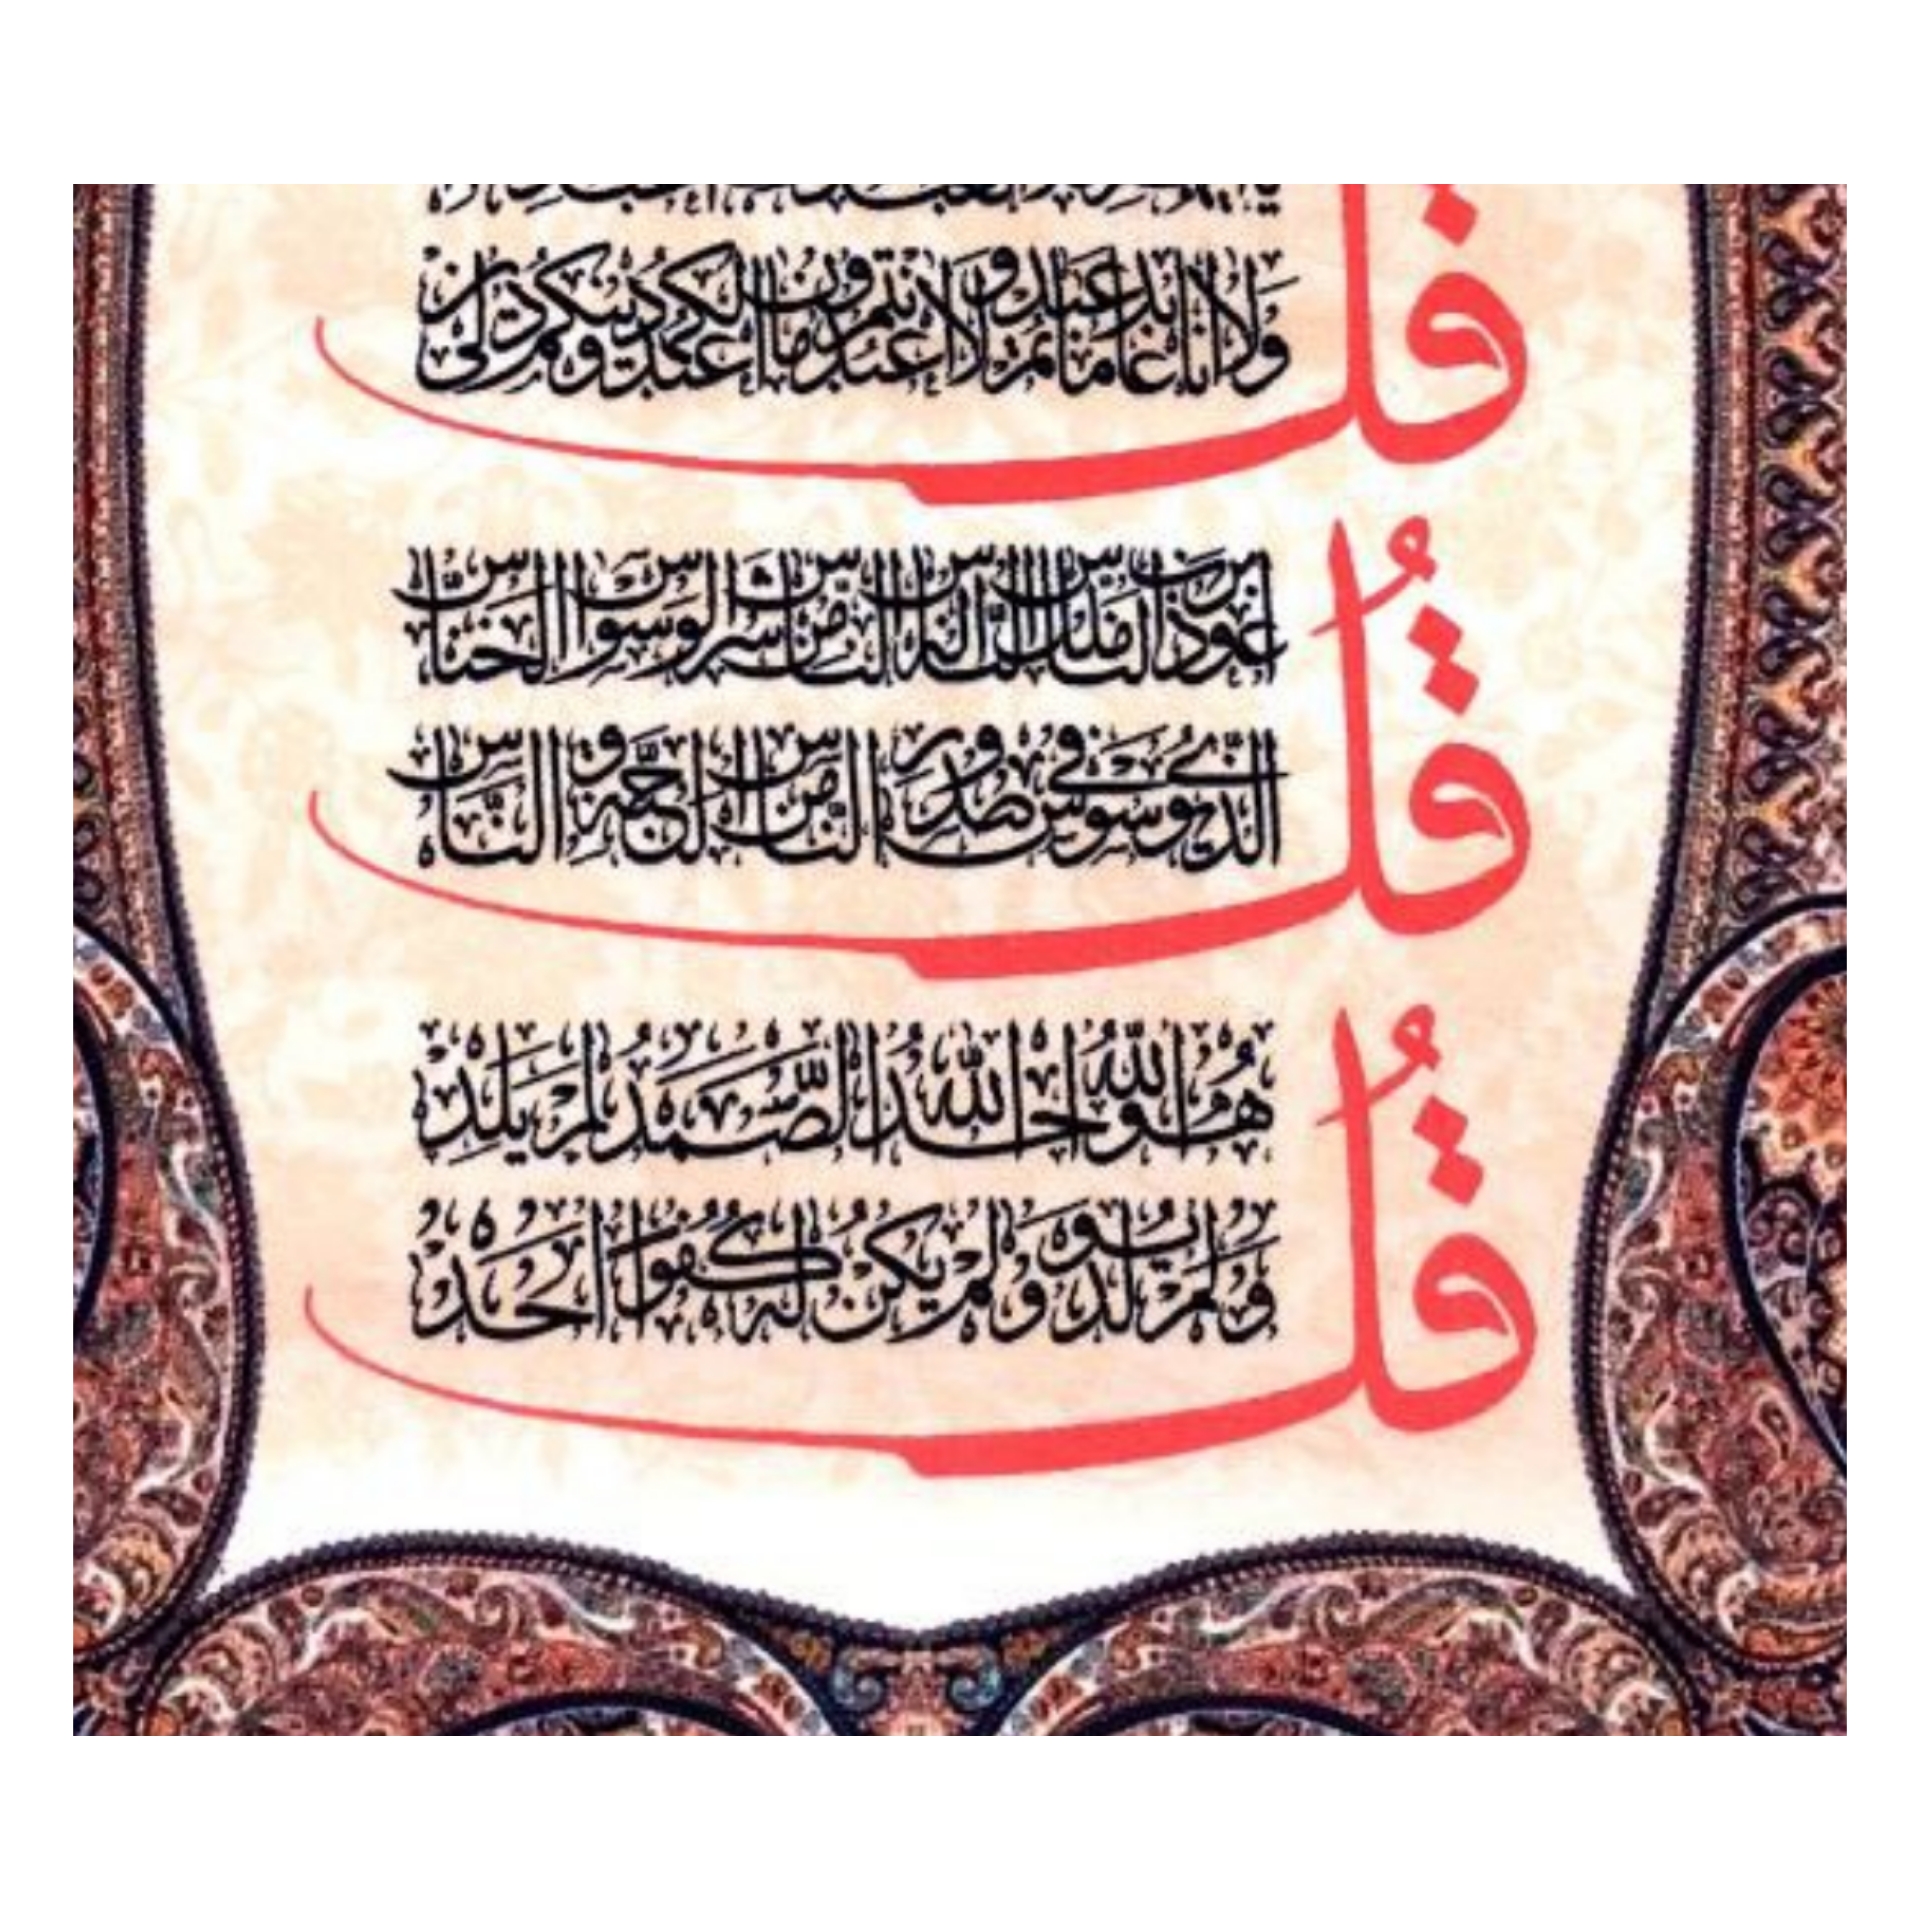 قل
ولا انا عابد ما عبدتم ولا انتم عابدون ما اعبد لكم دينكم ولي دين
قُل
اعوذ برب الناس ملك الناس اله الناس من شر الوسواس الخناس
الذي يوسوس في صدور الناس من الجنة و الناس
قُل
هو الله احد الله الصمد لم يلد
ولم يولد ولم يكن له كفوا احد